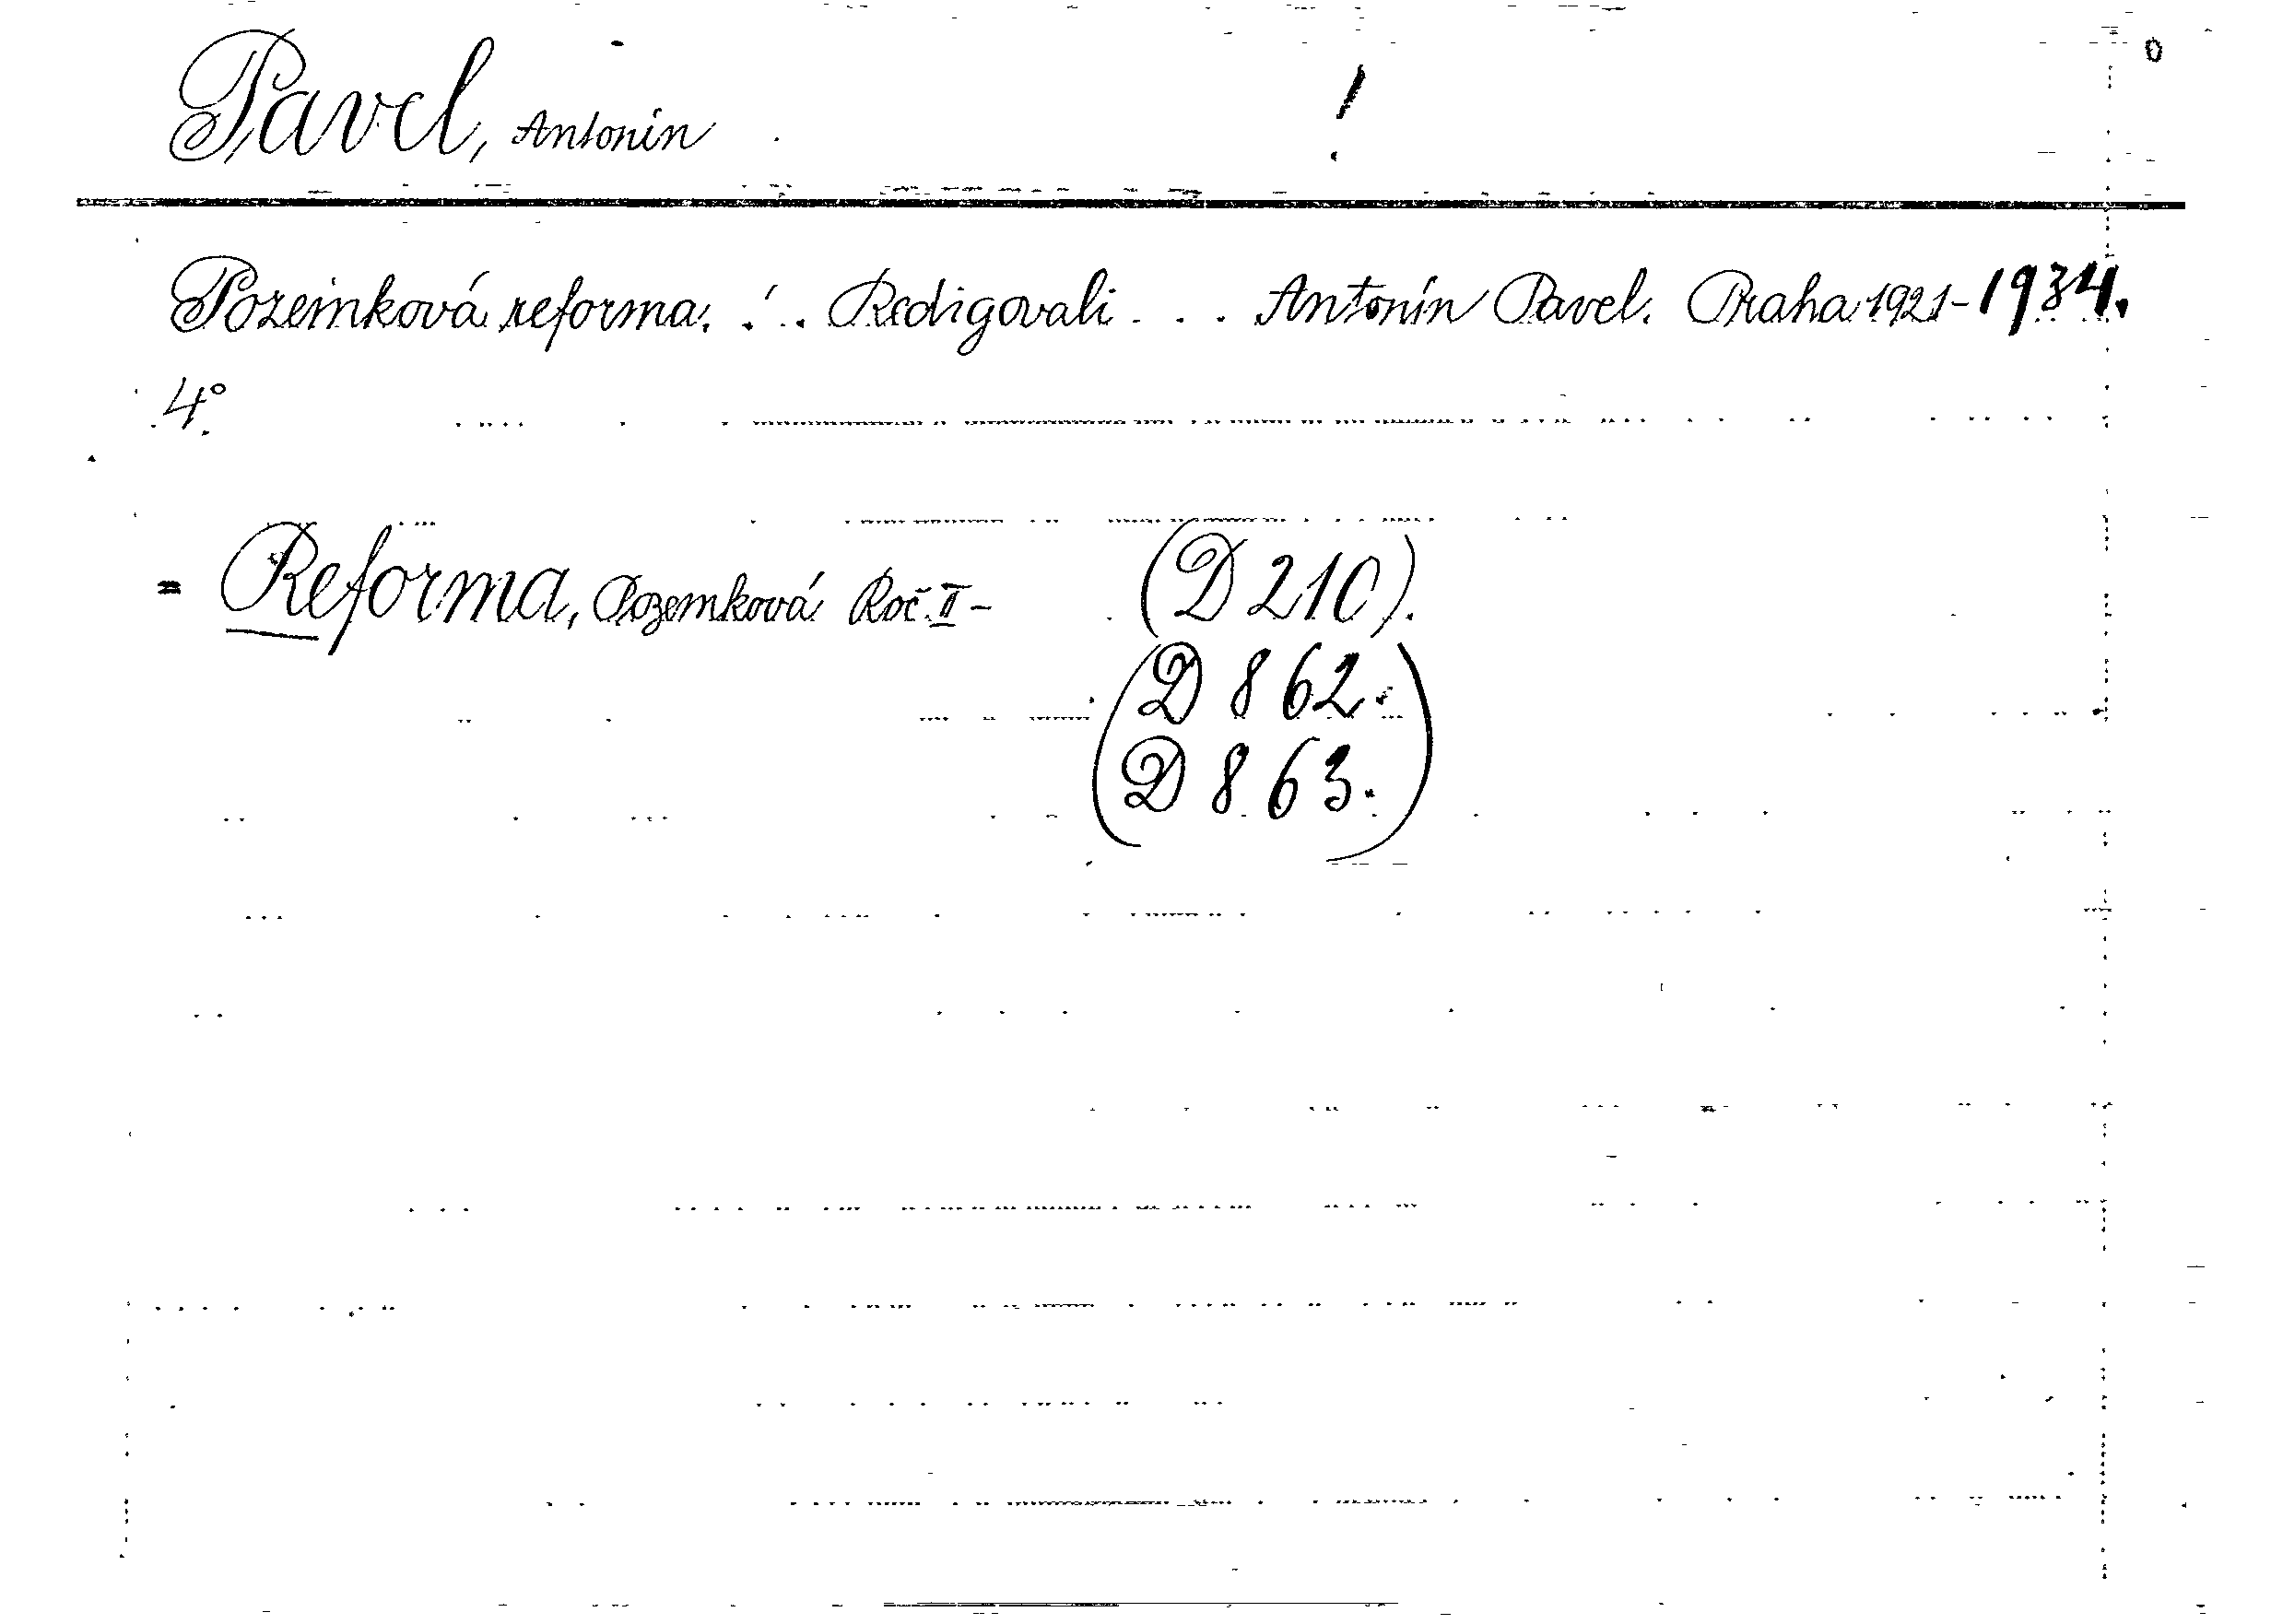 Pavel, Antonín !
Pozemková reforma. ... Redigovali ... Antonín Pavel. Praha 1921-1934.
4°.
= Reforma, Pozemková Roč. II - (D 210).
(D 862.
D 863.)